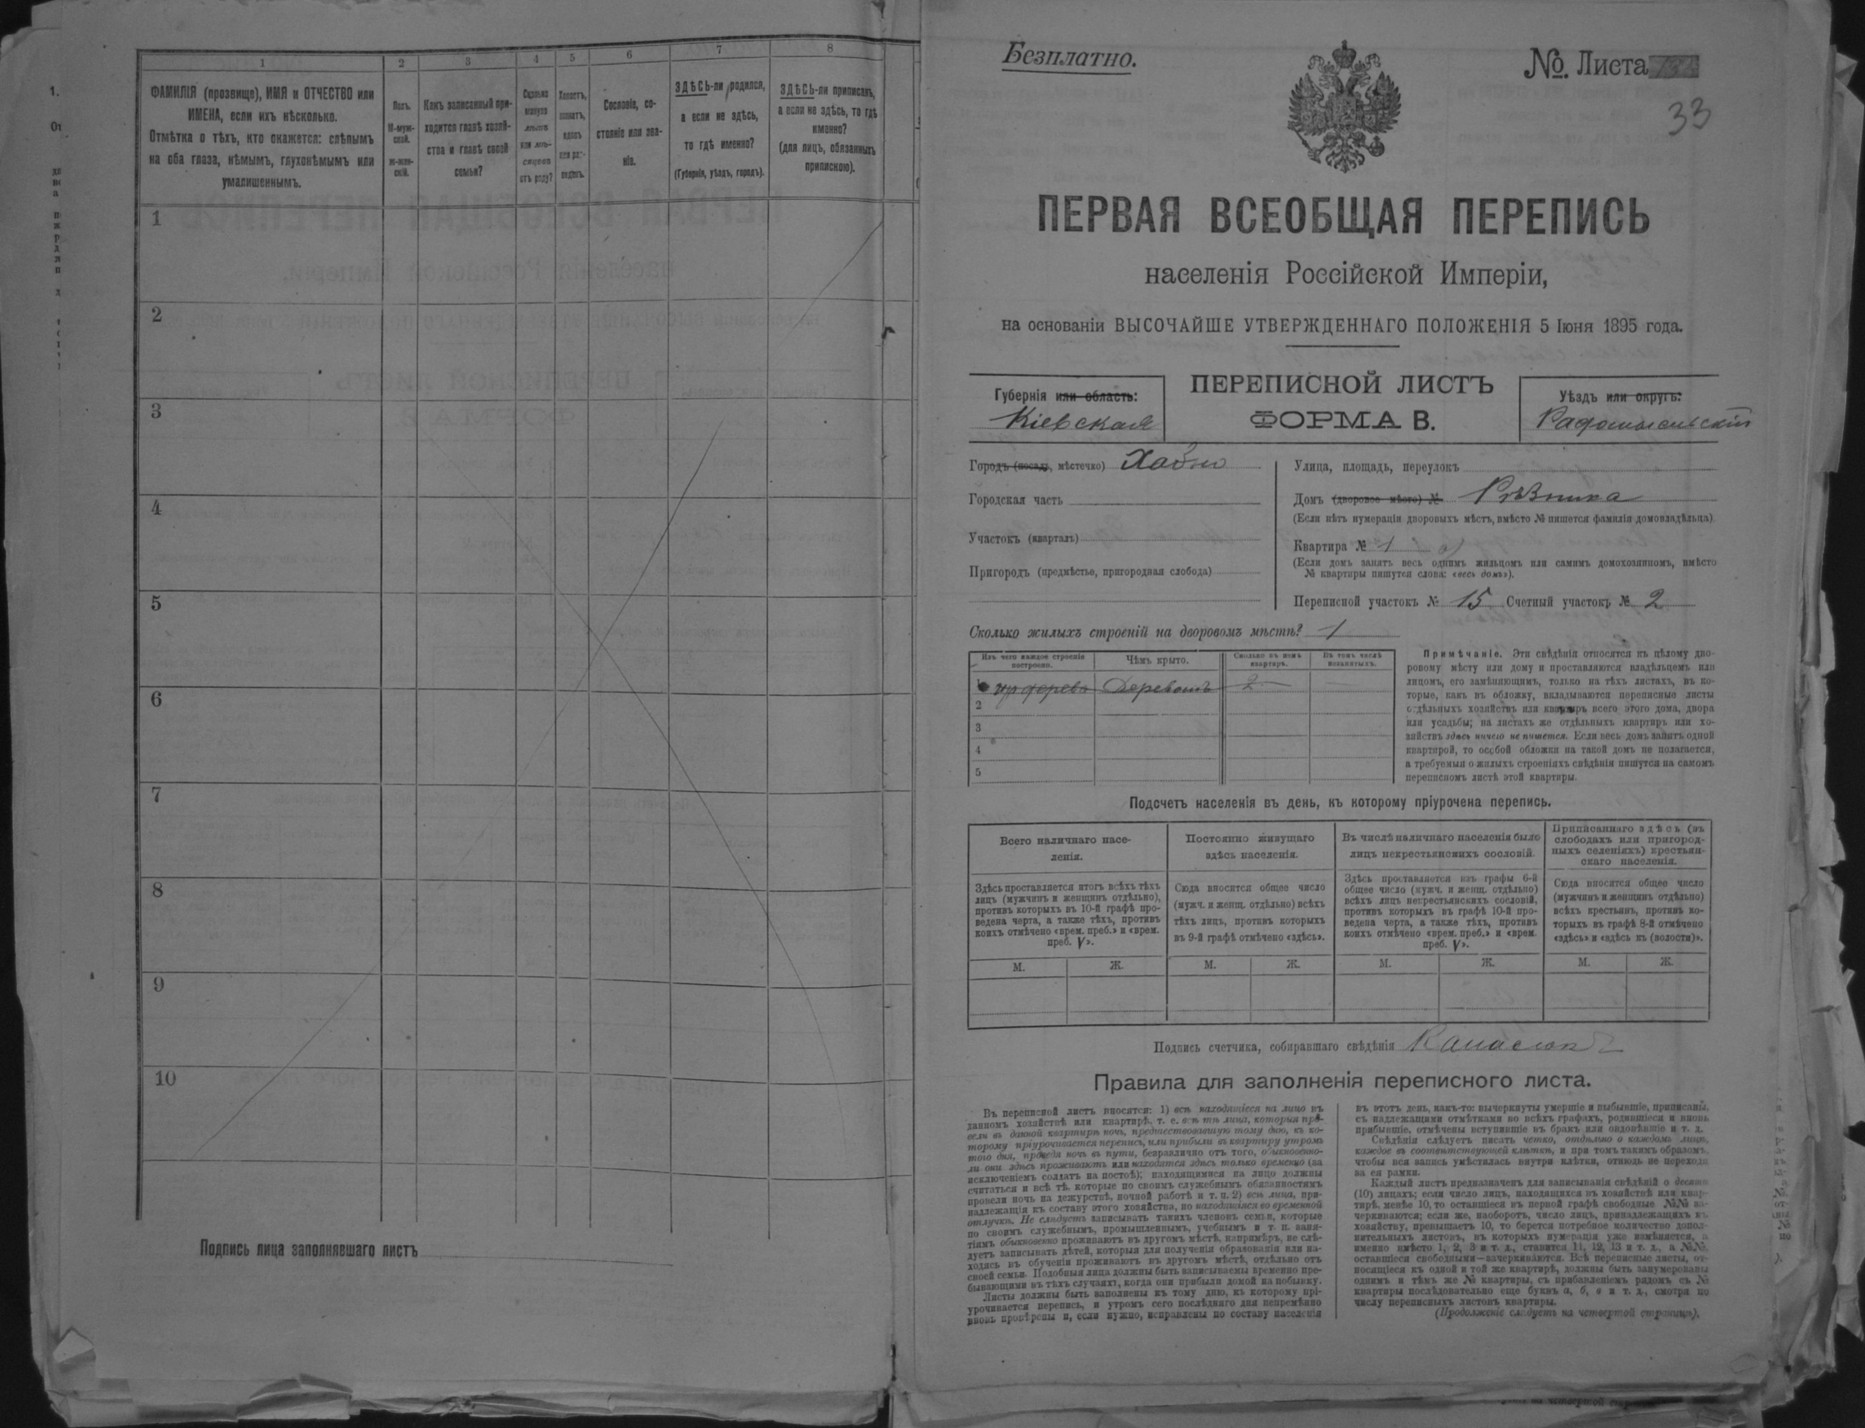 1 2 3 4 5 6 7 8
ФАМИЛІЯ (прозвище), ИМЯ и ОТЧЕСТВО или
ИМЕНА, если ихъ нѣсколько.
Отмѣтка о тѣхъ, кто окажется: слѣпымъ
на оба глаза, нѣмымъ, глухонѣмымъ или
умалишеннымъ.
Полъ.
М-муж-
ской.
ж-жен-
скій.
Какъ записанный при-
ходится главѣ хозяй-
ства и главѣ своей
семьи?
Сколько
минуло
лѣтъ
или мѣ-
сяцевъ
отъ роду?
Холостъ,
женатъ,
вдовъ
или раз-
веденъ.
Сословіе, со-
стояніе или зва-
ніе.
ЗДѢСЬ-ли родился,
а если не здѣсь,
то гдѣ именно?
(Губернія, уѣздъ, городъ).
ЗДѢСЬ-ли приписанъ,
а если не здѣсь, то гдѣ
именно?
(для лицъ, обязанныхъ
припискою).
1
2
3
4
5
6
7
8
9
10
Подпись лица заполнявшаго листъ
Безплатно.
№ Листа
33
ПЕРВАЯ ВСЕОБЩАЯ ПЕРЕПИСЬ
населенія Россійской Имперіи,
на основаніи ВЫСОЧАЙШЕ УТВЕРЖДЕННАГО ПОЛОЖЕНІЯ 5 Іюня 1895 года.
Губернія или область:
Кіевская
ПЕРЕПИСНОЙ ЛИСТЪ
ФОРМА В.
Уѣздъ или округъ:
Радомысльскій
Городъ (посадъ, мѣстечко) Хабно
Городская часть
Участокъ (кварталъ)
Пригородъ (предмѣстье, пригородная слобода)
Улица, площадь, переулокъ
Домъ (дворовое мѣсто) № Рѣзника
(Если нѣтъ нумераціи дворовыхъ мѣстъ, вмѣсто № пишется фамилія домовладѣльца)
Квартира № 1
(Если домъ занятъ весь однимъ жильцомъ или самимъ домохозяиномъ, вмѣсто
№ квартиры пишутся слова: «весь домъ»).
Переписной участокъ № 15 Счетный участокъ № 2
Сколько жилыхъ строеній на дворовомъ мѣстѣ? 1
Изъ чего каждое строеніе
построено.
Чѣмъ крыто.
Сколько въ немъ
квартиръ.
Въ томъ числѣ
незанятыхъ.
1 изъ дерева Деревомъ 2
2
3
4
5
Примѣчаніе. Эти свѣдѣнія относятся къ цѣлому дво-
ровому мѣсту или дому и проставляются владѣльцемъ или
лицомъ, его замѣняющимъ, только на тѣхъ листахъ, въ ко-
торые, какъ въ обложку, вкладываются переписные листы
отдѣльныхъ хозяйствъ или квартиръ всего этого дома, двора
или усадьбы; на листахъ же отдѣльныхъ квартиръ или хо-
зяйствъ здѣсь ничего не пишется. Если весь домъ занятъ одной
квартирой, то особой обложки на такой домъ не полагается,
а требуемыя о жилыхъ строеніяхъ свѣдѣнія пишутся на самомъ
переписномъ листѣ этой квартиры.
Подсчетъ населенія въ день, къ которому пріурочена перепись.
Всего наличнаго насе-
ленія.
Здѣсь проставляется итогъ всѣхъ тѣхъ
лицъ (мужчинъ и женщинъ отдѣльно),
противъ которыхъ въ 10-й графѣ про-
ведена черта, а также тѣхъ, противъ
коихъ отмѣчено «врем. преб.» и «врем.
преб. V».
Постоянно живущаго
здѣсь населенія.
Сюда вносится общее число
(мужч. и женщ. отдѣльно) всѣхъ
тѣхъ лицъ, противъ которыхъ
въ 9-й графѣ отмѣчено «здѣсь».
Въ числѣ наличнаго населенія было
лицъ некрестьянскихъ сословій.
Здѣсь проставляется изъ графы 6-й
общее число (мужч. и женщ. отдѣльно)
всѣхъ лицъ некрестьянскихъ сословій,
противъ которыхъ въ графѣ 10-й про-
ведена черта, а также тѣхъ, противъ
коихъ отмѣчено «врем. преб.» и «врем.
преб. V».
Приписаннаго здѣсь (въ
слободахъ или пригород-
ныхъ селеніяхъ) крестьян-
скаго населенія.
Сюда вносится общее число
(мужчинъ и женщинъ отдѣльно)
всѣхъ крестьянъ, противъ ко-
торыхъ въ графѣ 8-й отмѣчено
«здѣсь» и «здѣсь къ (волости)».
М. Ж. М. Ж. М. Ж. М. Ж.
Подпись счетчика, собиравшаго свѣдѣнія
Правила для заполненія переписного листа.
Въ переписной листъ вносятся: 1) всѣ находящіеся на лицо въ
данномъ хозяйствѣ или квартирѣ, т. е. всѣ тѣ лица, которыя про-
вели въ данной квартирѣ ночь, предшествовавшую тому дню, къ ко-
торому пріурочивается перепись, или прибыли въ квартиру утромъ
того дня, проведя ночь въ пути, безразлично отъ того, обыкновенно-
ли они здѣсь проживаютъ или находятся здѣсь только временно (за
исключеніемъ солдатъ на постоѣ); находящимися на лицо должны
считаться и всѣ тѣ, которые по своимъ служебнымъ обязанностямъ
провели ночь на дежурствѣ, ночной работѣ и т. п. 2) всѣ лица, при-
надлежащія къ составу этого хозяйства, но находящіяся во временной
отлучкѣ. Не слѣдуетъ записывать такихъ членовъ семьи, которые
по своимъ служебнымъ, промышленнымъ, учебнымъ и т. п. заня-
тіямъ обыкновенно проживаютъ въ другомъ мѣстѣ, напримѣръ, не слѣ-
дуетъ записывать дѣтей, которыя для полученія образованія или на-
ходясь въ обученіи проживаютъ въ другомъ мѣстѣ, отдѣльно отъ
своей семьи. Подобныя лица должны быть записываемы временно пре-
бывающими въ тѣхъ случаяхъ, когда они прибыли домой на побывку.
Листы должны быть заполнены къ тому дню, къ которому прі-
урочивается перепись, и утромъ сего послѣдняго дня непремѣнно
вновь провѣрены и, если нужно, исправлены по составу населенія
въ этотъ день, какъ-то: вычеркнуты умершіе и выбывшіе, приписаны,
съ надлежащими отмѣтками во всѣхъ графахъ, родившіеся и вновь
прибывшіе, отмѣчены вступившіе въ бракъ или овдовѣвшіе и т. д.
Свѣдѣнія слѣдуетъ писать четко, отдѣльно о каждомъ лицѣ,
каждое въ соотвѣтствующей клѣткѣ, и при томъ такимъ образомъ,
чтобы вся запись умѣсталась внутри клѣтки, отнюдь не переходя
за ея рамки.
Каждый листъ предназначенъ для записыванія свѣдѣній о десяти
(10) лицахъ; если число лицъ, находящихся въ хозяйствѣ или квар-
тирѣ, менѣе 10, то оставшіеся въ первой графѣ свободные №№ за-
черкиваются; если же, наоборотъ, число лицъ, принадлежащихъ къ
хозяйству, превышаетъ 10, то берется потребное количество допол-
нительныхъ листовъ, въ которыхъ нумерація уже измѣняется, а
именно вмѣсто 1, 2, 3 и т. д., ставится 11, 12, 13 и т. д., а №№,
оставшіеся свободными—зачеркиваются. Всѣ переписные листы, от-
носящіеся къ одной и той же квартирѣ, должны быть занумерованы
однимъ и тѣмъ же № квартиры, съ прибавленіемъ рядомъ съ №
квартиры послѣдовательно еще буквъ а, б, в и т. д., смотря по
числу переписныхъ листовъ квартиры.
(Продолженіе слѣдуетъ на четвертой страницѣ).